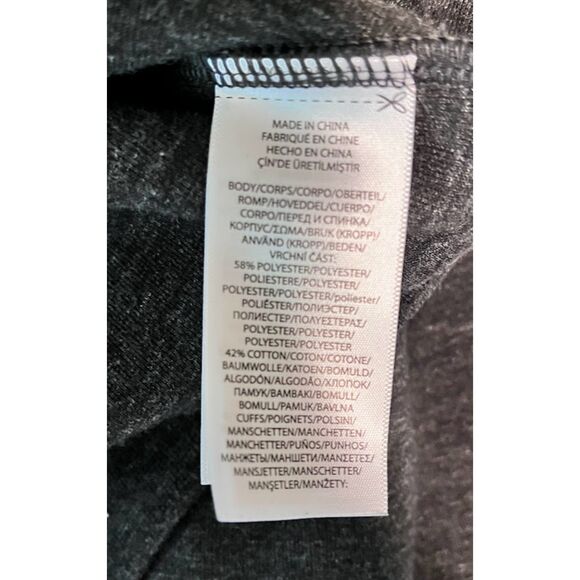 MADE IN CHINA
FABRIQUÉ EN CHINE
HECHO EN CHINA
ÇİN'DE ÜRETİLMİŞTİR
BODY/CORPS/CORPO/OBERTEIL/
ROMP/HOVEDDEL/CUERPO/
CORPO/ПЕРЕД И СПИНКА/
КОРПУС/ΣΩΜΑ/BRUK (KROPP)/
ANVÄND (KROPP)/BEDEN/
VRCHNÍ ČÁST:
58% POLYESTER/POLYESTER/
POLIESTERE/POLYESTER/
POLYESTER/POLYESTER/poliester/
POLIÉSTER/ПОЛИЭСТЕР/
ПОЛИЕСТЕР/ΠΟΛΥΕΣΤΕΡΑΣ/
POLYESTER/POLYESTER/
POLYESTER/POLYESTER
42% COTTON/COTON/COTONE/
BAUMWOLLE/KATOEN/BOMULD/
ALGODÓN/ALGODÃO/ХЛОПОК/
ПАМУК/ΒΑΜΒΑΚΙ/BOMULL/
BOMULL/PAMUK/BAVLNA
CUFFS/POIGNETS/POLSINI/
MANSCHETTEN/MANCHETTEN/
MANCHETTER/PUÑOS/PUNHOS/
МАНЖЕТЫ/МАНШЕТИ/ΜΑΝΣΕΤΕΣ/
MANSJETTER/MANSCHETTER/
MANŞETLER/MANŽETY: